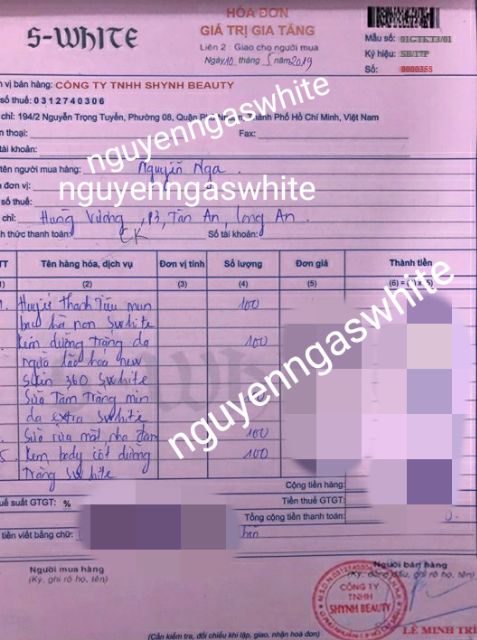 S-WHITE
HÓA ĐƠN
GIÁ TRỊ GIA TĂNG
Liên 2 : Giao cho người mua
Ngày 10 tháng 5 năm 2019
Mẫu số: 01GTKT3/01
Ký hiệu: SB/17P
Số: 0000355
n vị bán hàng: CÔNG TY TNHH SHYNH BEAUTY
số thuế: 0312740306
chỉ: 194/2 Nguyễn Trọng Tuyển, Phường 08, Quận Phú Nhuận, Thành Phố Hồ Chí Minh, Việt Nam
n thoại: Fax:
tài khoản:
nguyenngaswhite
tên người mua hàng: Nguyễn Nga
đơn vị:
nguyenngaswhite
số thuế:
chỉ: Hùng Vương, P3, Tân An, Long An.
h thức thanh toán: CK Số tài khoản:
TT Tên hàng hóa, dịch vụ Đơn vị tính Số lượng Đơn giá Thành tiền
(1) (2) (3) (4) (5)
Huyết Thanh Tiêu mụn 100
Swhite
Kem dưỡng Trắng da 100
ngừa lão hóa new
Skin 360 Swhite
Sữa Tắm Trắng mịn
da extra Swhite
Sữa rửa mặt nha đam 100
5. Kem body cốt dưỡng 100
Trắng Swhite
nguyenngaswhite
Cộng tiền hàng:
uế suất GTGT: % Tiền thuế GTGT:
Tổng cộng tiền thanh toán:
tiền viết bằng chữ:
Người mua hàng Người bán hàng
(Ký, ghi rõ họ, tên)
CÔNG TY
TNHH
SHYNH BEAUTY
LÊ MINH TRÍ
(Cần kiểm tra, đối chiếu khi lập, giao, nhận hoá đơn)